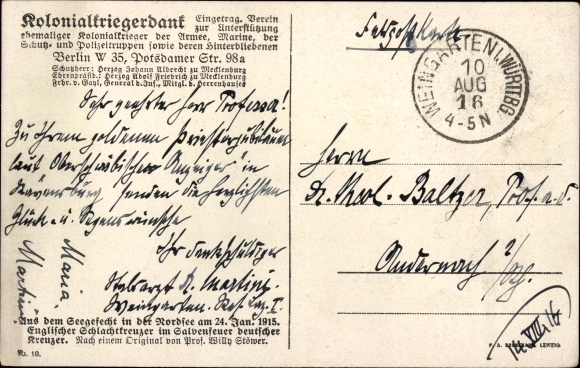 Kolonialkriegerdank Eingetrag. Verein
zur Unterstützung
ehemaliger Kolonialkrieger der Armee, Marine, der
Schutz- und Polizeitruppen sowie deren Hinterbliebenen
Berlin W 35, Potsdamer Str. 98a
Schutzherr: Herzog Johann Albrecht zu Mecklenburg
Ehrenpräsid.: Herzog Adolf Friedrich zu Mecklenburg
Frhr. v. Gayl, General d. Inf., Mitgl. d. Herrenhauses
Feldpostkarte
WEINGARTEN (WÜRTTBG.
10
AUG
16
4-5N
Sehr geehrter Herr Professor!
Zu Ihrem goldenen Priesterjubiläum
laut Oberschwäbischer Anzeiger in
Ravensburg senden die herzlichsten
Glück- u. Segenswünsche
Ihr dankschuldiger
Stabsarzt Dr. Martini
Weingarten. Res. Laz. I.
Maria
Martini
Herrn
Dr. Baltzer, Prof. a. D.
Andernach
Aus dem Seegefecht in der Nordsee am 24. Jan. 1915.
Englischer Schlachtkreuzer im Salvenfeuer deutscher
Kreuzer. Nach einem Original von Prof. Willy Stöwer.
Nr. 10.
VIII 16